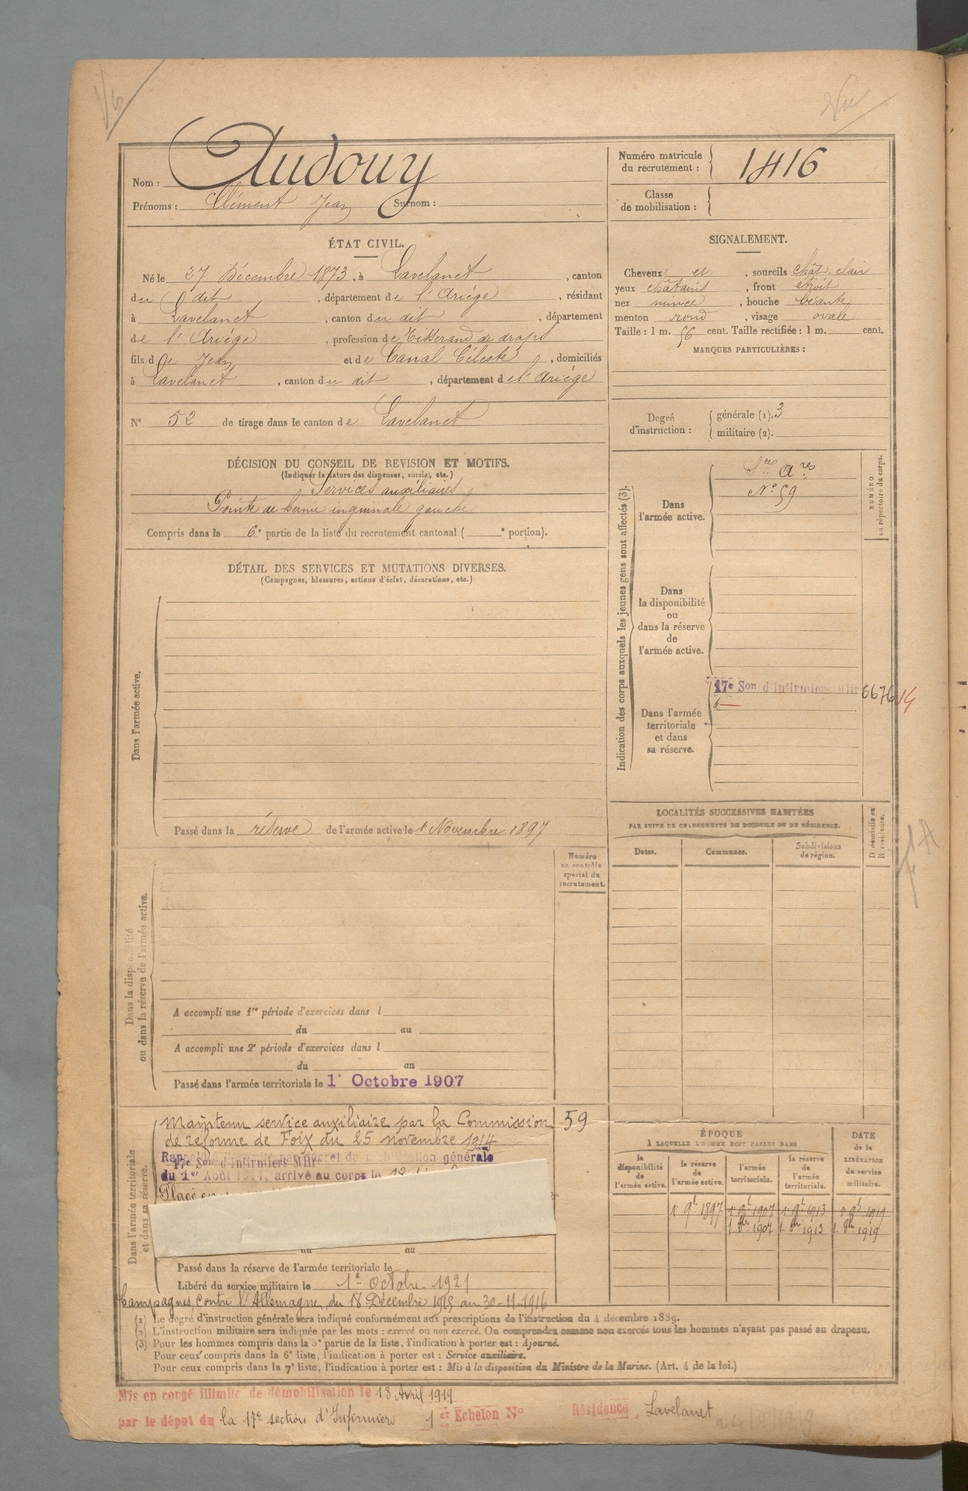 Nom : Audouy
Prénoms : Clément Jean Surnom :
Numéro matricule du recrutement : 1416
Classe de mobilisation :
ÉTAT CIVIL.
Né le 27 Décembre 1873, à Lavelanet, canton
du dit, département de l'Ariège, résidant
à Lavelanet, canton du dit, département
de l'Ariége, profession de Tisserand de draps
fils de Jean et de Canal Céleste, domiciliés
à Lavelanet, canton du dit, département de l'Ariége
N° 52 de tirage dans le canton de Lavelanet
SIGNALEMENT.
Cheveux et, sourcils chât. clair
yeux châtains, front étroit
nez mince, bouche béante
menton rond, visage ovale
Taille : 1 m. 56 cent. Taille rectifiée : 1 m. cent.
MARQUES PARTICULIÈRES :
Degré d'instruction : générale (1). 3
militaire (2).
DÉCISION DU CONSEIL DE REVISION ET MOTIFS.
(Indiquer la nature des dispenses, sursis, etc.)
Services auxiliaires
Pointe de hernie inguinale gauche
Compris dans la 6e partie de la liste du recrutement cantonal ( e portion).
DÉTAIL DES SERVICES ET MUTATIONS DIVERSES.
(Campagnes, blessures, actions d'éclat, décorations, etc.)
Dans l'armée active.
Passé dans la réserve de l'armée active le 1 Novembre 1897
Indication des corps auxquels les jeunes gens sont affectés (3).
Dans l'armée active.
Sces Ares
N° 59
NUMÉRO au répertoire du corps.
Dans la disponibilité ou dans la réserve de l'armée active.
17e Son d'Infirmiers Mil 6676 14
Dans l'armée territoriale et dans sa réserve.
LOCALITÉS SUCCESSIVES HABITÉES
PAR SUITE DE CHANGEMENTS DE DOMICILE OU DE RÉSIDENCE.
Dates. Communes. Subdivisions de région.
D domicile ou R résidence.
Numéro au contrôle spécial du recrutement.
Dans la disponibilité ou dans la réserve de l'armée active.
A accompli une 1re période d'exercices dans l
du au
A accompli une 2e période d'exercices dans l
du au
Passé dans l'armée territoriale le 1er Octobre 1907
Dans l'armée territoriale et dans sa réserve.
Maintenu service auxiliaire par la Commission 59
de réforme de Foix du 25 novembre 1914
17e Son d'Infirmiers Mil
du 1er Août 1914, arrivé au corps le
Placé en
au au
Passé dans la réserve de l'armée territoriale le
Libéré du service militaire le 1er octobre 1921
Campagnes contre l'Allemagne, du 18 Décembre 1915 au 30-11-1916
ÉPOQUE
À LAQUELLE L'HOMME DOIT PASSER DANS
la disponibilité de l'armée active. la réserve de l'armée active. l'armée territoriale. la réserve de l'armée territoriale.
DATE de la LIBÉRATION du service militaire.
1 9bre 1897 1 9bre 1907 1 9bre 1913 1 9bre 1919
1 8bre 1907 1 8bre 1913 1 8bre 1919
(1) Le degré d'instruction générale sera indiqué conformément aux prescriptions de l'instruction du 4 décembre 1889.
(2) L'instruction militaire sera indiquée par les mots : exercé ou non exercé. On comprendra comme non exercés tous les hommes n'ayant pas passé au drapeau.
(3) Pour les hommes compris dans la 5e partie de la liste, l'indication à porter est : Ajourné.
Pour ceux compris dans la 6e liste, l'indication à porter est : Service auxiliaire.
Pour ceux compris dans la 7e liste, l'indication à porter est : Mis à la disposition du Ministre de la Marine. (Art. 4 de la loi.)
Mis en congé illimité de démobilisation le 18 Avril 1919
par le dépôt du la 17e section d'Infirmiers 1er Echelon N° Résidence Lavelanet